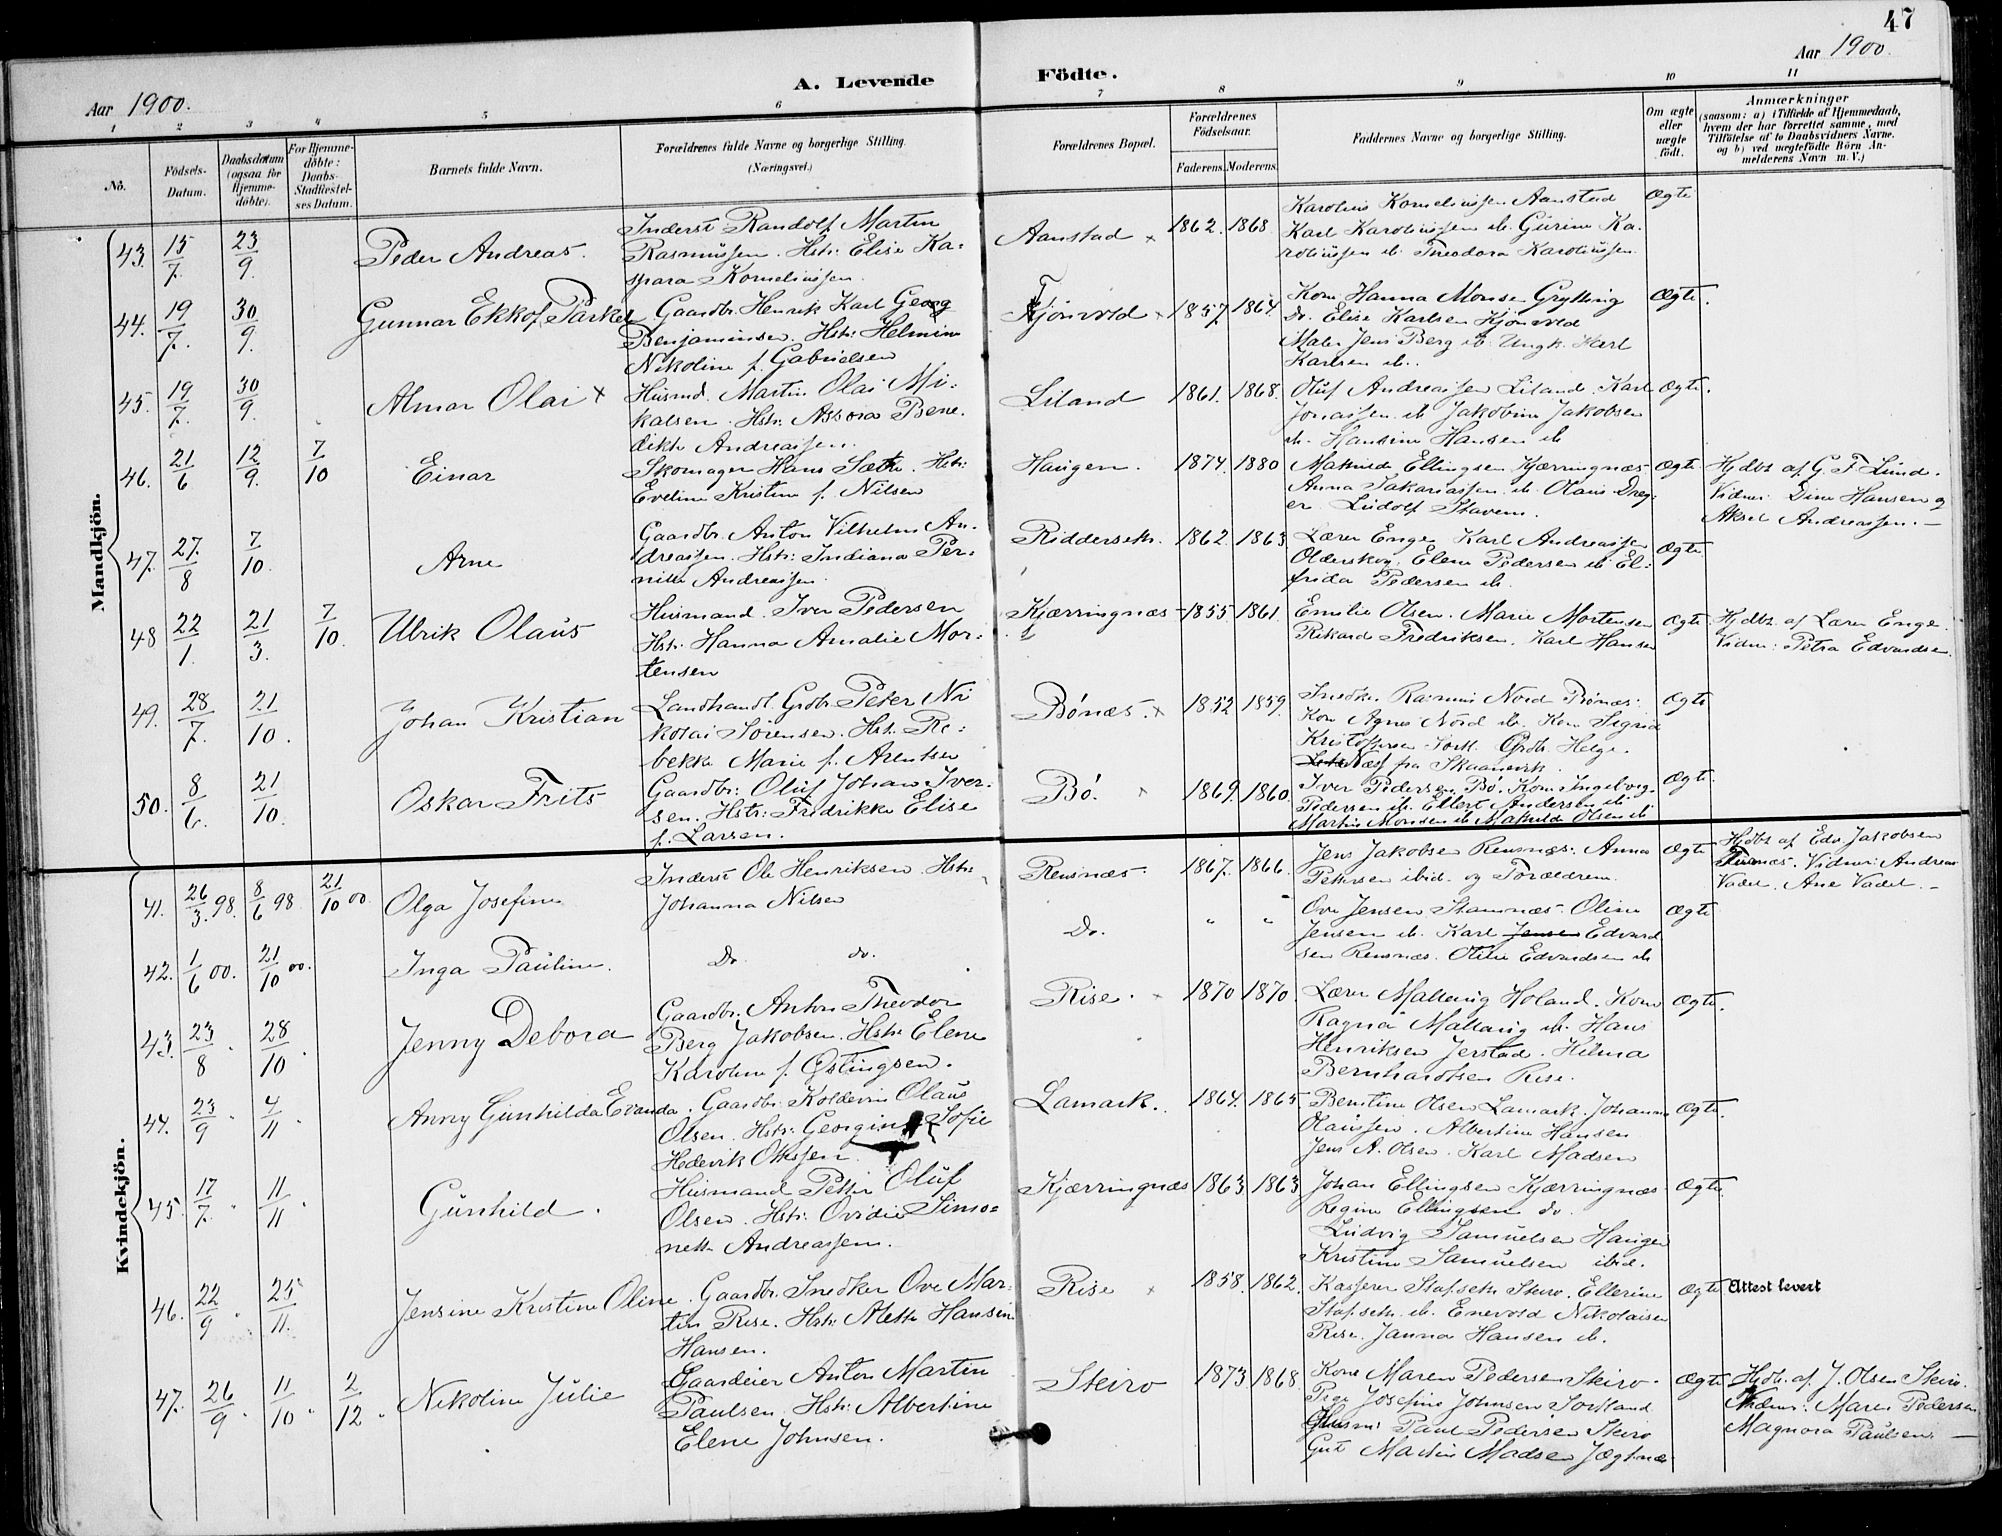 47
Aar 1900.
A. Levende
Födte.
Aar 1900.
1 2 3 4 5 6 7 8 9 10 11
No.
Födsels-
Datum.
Daabsdatum
(ogsaa for
Hjemme-
döbte).
For Hjemme-
döbte:
Daabs-
Stadfæstel-
ses Datum.
Barnets fulde Navn.
Forældrenes fulde Navne og borgerlige Stilling.
(Næringsvei.)
Forældrenes Bopæl.
Forældrenes
Födselsaar.
Faderens. Moderens.
Faddernes Navne og borgerlige Stilling.
Om ægte
eller
uægte
födt.
Anmærkninger
(saasom: a) i Tilfælde af Hjemmedaab,
hvem der har forrettet samme, med
Tilföielse af to Daabsvidners Navne.
og b) ved uægtefödte Börn An-
melderens Navn m. V.)
Mandkjön.
43. 15/7. 23/9. Peder Andreas.
Inderst Randolf Martin
Rasmussen. Hstr. Elise Ka-
spara Korneliussen.
Aanstad x 1862. 1868
Karolius Korneliussen Aanstad
Karl Karoliussen ib. Gurine Ka-
roliussen ib. Theodora Karoliussen.
Ægte
44. 19/7. 30/9. Gunnar Ekkof Parkel
Gaardbr. Henrik Karl Georg
Benjaminsen. Hstr. Helmine
Nikoline f. Gabrielsen
Fjönvold x 1857. 1864.
Kone Hanna Monsen Grytting
Do. Elise Karlsen Kjönvold
Maler Jens Berg ib. Ungk. Karl
Karlsen ib.
Ægte.
45. 19/7. 30/9. Almar Olai x
Husmd. Martin Olai Mi-
kalsen. Hstr. Assora Bene-
dikte Andreassen.
Liland 1861. 1868.
Oluf Andreassen Liland. Karl
Jonassen ib. Jakobine Jakobsen
ib. Hansine Hansen ib
Ægte.
46. 21/6 12/9. 7/10 Einar
Skomager Hans Sæth. Hstr.
Eveline Kristine f. Nilsen
Haugen. 1874. 1880
Makulda Ellingsen Kjærringnæs
Anna Sakariassen ib. Olaus Drey-
er. Ludolf Stavem.
Ægte
Hjdbt af G. F. Lund.
Vidner: Dine Hansen og
Aksel Andreassen. —
47. 27./8 7/10. Arne
Gaardbr. Anton Vilhelm An-
dreassen. Hstr. Indiana Per-
nille Andreassen.
Riddersek. 1862. 1863
Lærer Enge. Karl Andreassen
Olderskog. Elene Pedersen ib. El-
frida Pedersen ib.
Ægte
48 22/1. 21/3. 7/10. Ulrik Olaus
Husmand. Iver Pedersen
Hstr. Hanna Amalie Mor-
tensen
Kjærringnæs 1855 1861.
Emilie Olsen. Marie Mortensen
Rikard Fredriksen. Karl Hansen
Ægte
Hjdbt. af Lærer Enge.
Vidner: Petra Edvardsen.
49. 28/7. 21/10. Johan Kristian
Landhandl. Grdbr. Peter Ni-
kolai Sörensen. Hstr. Re-
bekka Marie f. Arentsen
Bönæs. x 1852 1859.
Snedker Rasmus Nord Bönæs.
Kone Agnes Nord ib. Kone Sigrid
Kristoffersen Sortl. Grdbr. Helge
Næss fra Skaanevik.
Ægte
50. 8/6. 21/10. Oskar Frits
Gaardbr: Oluf Johan Iver-
sen. Hstr: Fredrikke Elise
f. Larsen.
Bö. 1869. 1860
Iver Pedersen Bö. Kone Ingeborg
Pedersen ib. Ellert Andersen ib.
Martin Monsen ib Makulda Olsen ib
Ægte.
Kvindekjön.
41. 26/3. 98. 8/6 98 21/10 00 Olga Josefine
Inderst Ole Henriksen. Hstr.
Johanna Nilsen
Rensnæs 1867. 1866.
Jens Jakobsen Rensnæs. Anna
Petersen ibid. og Forældrene.
Ægte
Hjdbt af Edv. Jakobsen
Vidner: Andreas
Vadel. Ane Vadel. —
42. 1/6 00. 21/10 00. Inga Pauline.
Do do.
Do. " "
Ove Jensen Stamnæs. Oline
Jensen ib. Karl Jensen Edvard-
sen Rensnæs. Otelie Edvardsen ib
Ægte
43. 23/8. 28/10. Jenny Debora
Gaardbr. Anton Theodor
Berg Jakobsen. Hstr Elene
Karoline f. Östingsen.
Rise. x 1870 1870.
Lærer Mallang Holand. Kone
Ragna Mallang ib. Hans
Henriksen Jerstad. Hilma
Bernhardtsen Rise.
Ægte.
44. 23/9. 4/11. Anny Gunhilda Evanda.
Gaardbr. Koldevin Olaus
Olsen. Hstr. Georgine Sofie
Hedevik
Lamark. 1864. 1865.
Bentine Olsen Lamark. Johanna
Olaussen. Albertine Hansen
Jens A. Olsen. Karl Madsen
Ægte.
45. 17/7. 11/11. Gunhild.
Husmand Petter Oluf
Olsen. Hstr. Ovidie Simo-
nette Andreassen.
Kjærringnæs 1863 1863
Johan Ellingsen Kjærringnæs
Regine Ellingsen do.
Ludvig Samuelsen Haugen
Kristine Samuelsen ibid.
Ægte.
46. 22/9. 25/11. Jensine Kristine Oline.
Gaardbr. Snedker Ove Mar-
tin Rise. Hstr. Mette Hansine
Hansen.
Rise x 1858. 1862.
Kasserer Stafseth Skeiro. Ellerine
Stafseth ib. Enevold Nikolaisen
Rise. Janna Hansen ib.
Ægte
Attest levert
47. 26/9. 11/10. 2/12. Nikoline Julie
Gaardeier Anton Martin
Paulsen. Hstr. Albertine
Elene Johnsen.
Skeiro 1873. 1868.
Kone Maren Pedersen Skeiro.
Pige Josefine Johnsen Sortland
Husm: Paul Pedersen Skeiro
Gut Martin Madsen Jægtnæs
Ægte
Hjdb. af J. Olsen Skeiro.
Vidner: Maren Pedersen
Magnora Paulsen. —